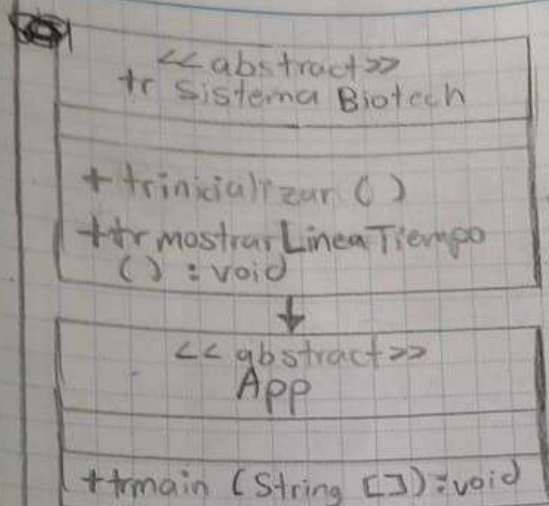 <<abstract>>
tr Sistema Biotech
+ trinicializar ( )
+tr mostrar Linea Tiempo
( ) : void
<<abstract>>
App
+trmain (String []) : void